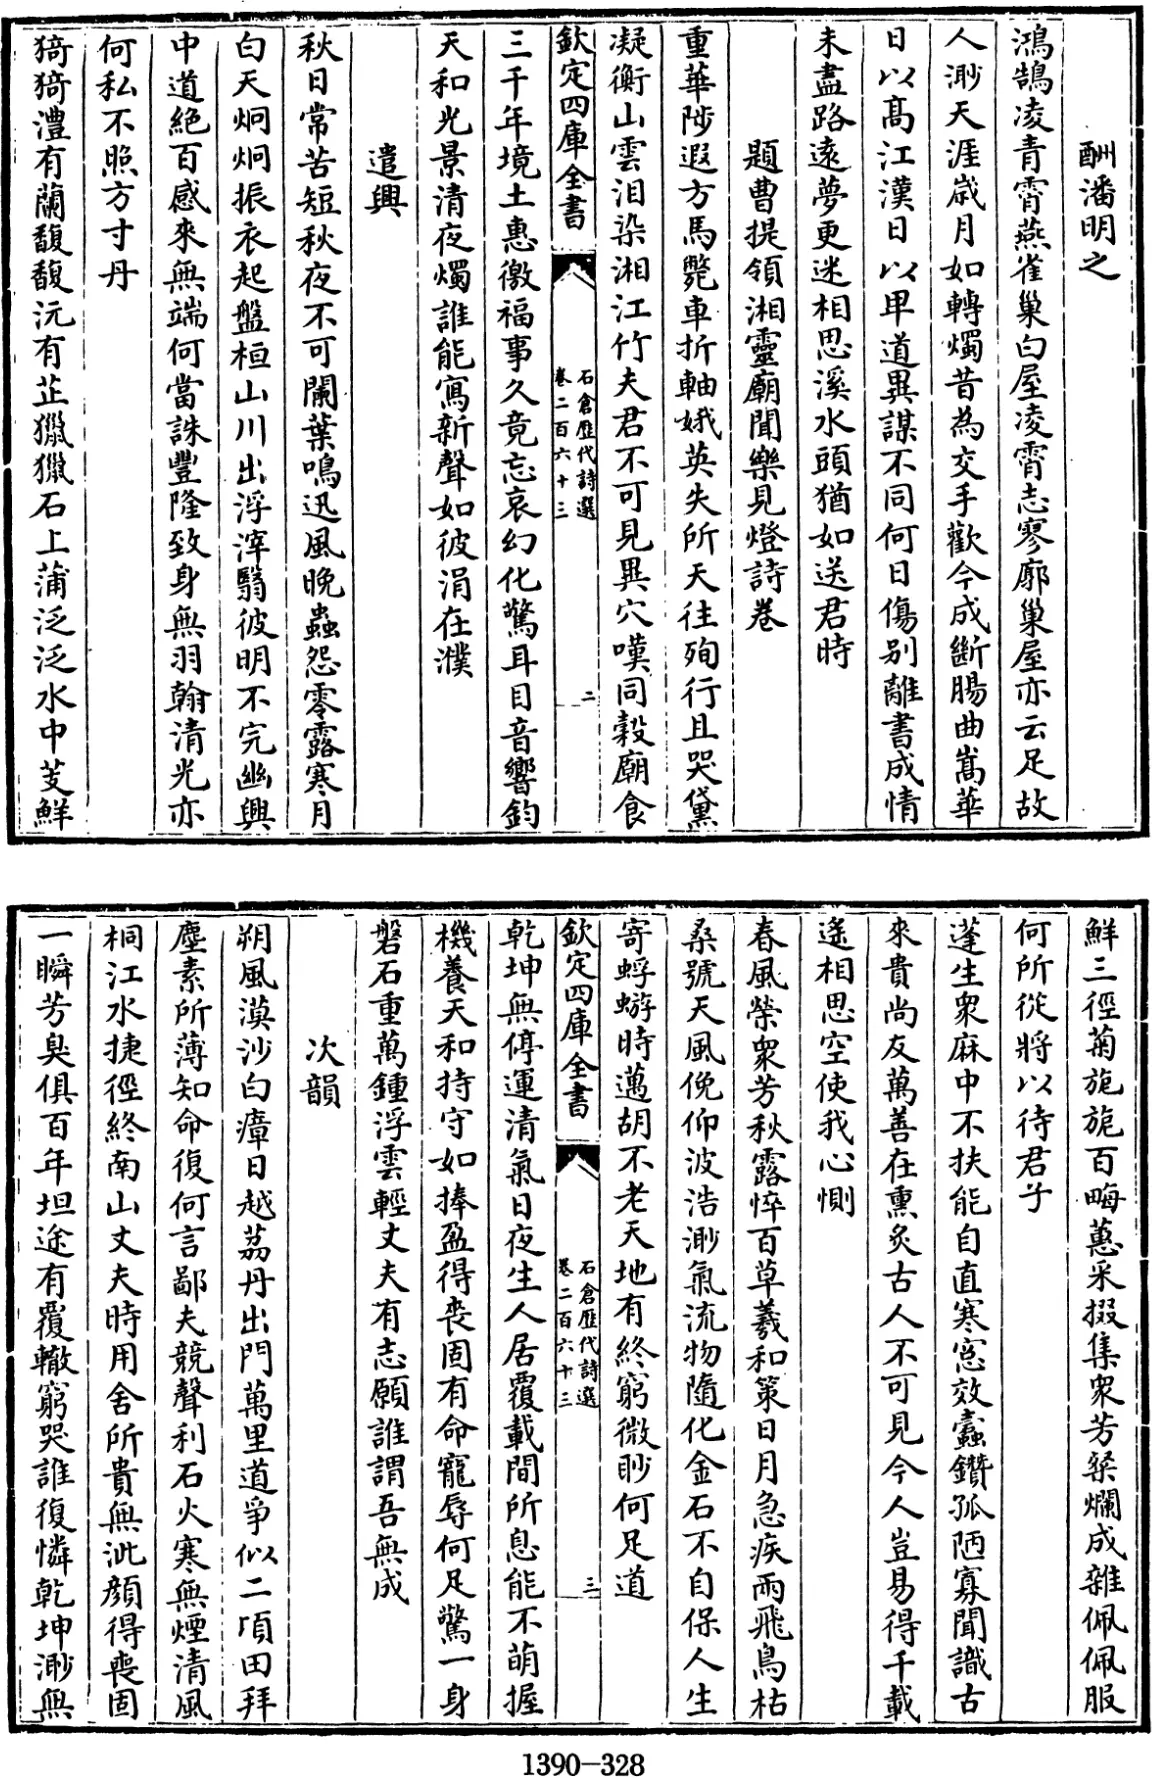 酬潘明之
鴻鵠凌青霄燕雀巢白屋凌霄志寥廓巢屋亦云足故
人渺天涯歳月如轉燭昔為交手歡今成斷腸曲嵩華
日以髙江漢日以卑道異謀不同何日傷别離書成情
未盡路遠夢更迷相思溪水頭猶如送君時
題曹提領湘靈廟聞樂見燈詩卷
重華陟遐方馬斃車折軸娥英失所天往殉行且哭黛
凝衡山雲泪染湘江竹夫君不可見異穴嘆同穀廟食
欽定四庫全書
石倉歴代詩選
卷二百六十三
二
三千年境土惠徼福事久竟忘哀幻化驚耳目音響鈞
天和光景清夜燭誰能寫新聲如彼涓在濮
遣興
秋日常苦短秋夜不可闌葉鳴迅風晩蟲怨零露寒月
白天炯炯振衣起盤桓山川出浮滓翳彼明不完幽興
中道絶百感來無端何當誅豐隆致身無羽翰清光亦
何私不照方寸丹
猗猗澧有蘭馥馥沅有芷獵獵石上蒲泛泛水中芰鮮
鮮三徑菊旎旎百畮蕙采掇集衆芳粲爛成雜佩佩服
何所從將以待君子
蓬生衆麻中不扶能自直寒窓效蠹鑽孤陋寡聞識古
來貴尚友萬善在熏炙古人不可見今人豈易得千載
遙相思空使我心惻
春風榮衆芳秋露悴百草羲和策日月急疾兩飛鳥枯
桑號天風俛仰波浩渺氣流物隨化金石不自保人生
寄蜉蝣時邁胡不老天地有終窮微眇何足道
欽定四庫全書
石倉歴代詩選
卷二百六十三
三
乾坤無停運清氣日夜生人居覆載間所息能不萌握
機養天和持守如捧盈得喪固有命寵辱何足驚一身
磐石重萬鍾浮雲輕丈夫有志願誰謂吾無成
次韻
朔風漠沙白瘴日越荔丹出門萬里道爭似二頃田拜
塵素所薄知命復何言鄙夫競聲利石火寒無煙清風
桐江水捷徑終南山丈夫時用舍所貴無泚顔得喪固
一瞬芳臭俱百年坦途有覆轍窮哭誰復憐乾坤渺無
1390-328